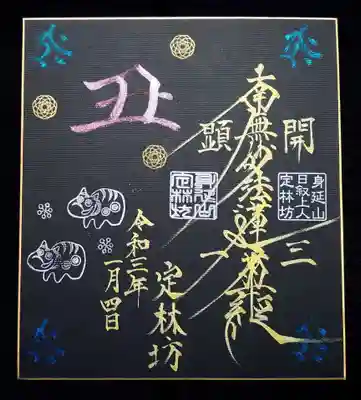 開三
身延山
日叙上人
定林坊
南無妙法蓮華經
顕一
身延山
定林坊
定林坊
丑
令和三年
一月四日